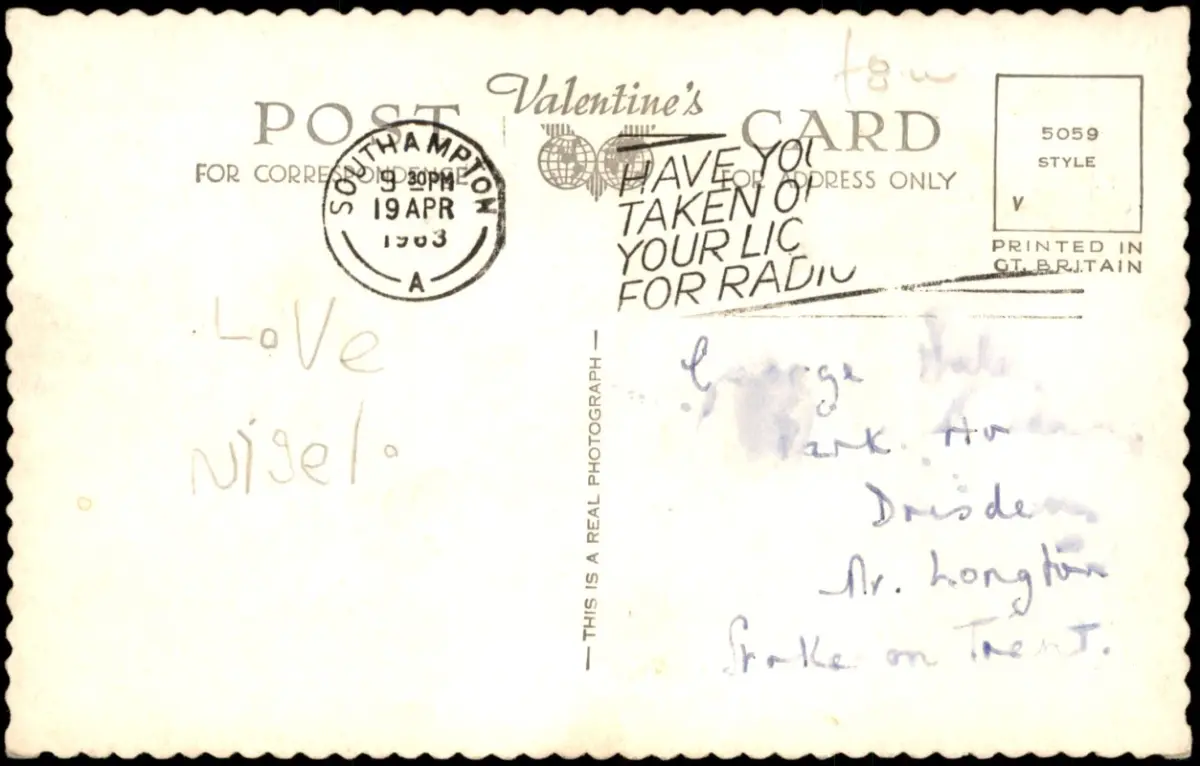 Valentine's
POST CARD
FOR CORRESPONDENCE
FOR ADDRESS ONLY
SOUTHAMPTON
9 30PM
19 APR
1963
A
HAVE YOU
TAKEN O
YOUR LIC
FOR RADIO
5059
STYLE
V
PRINTED IN
GT. BRITAIN
Love
Nigel.
— THIS IS A REAL PHOTOGRAPH —
George
Park
Drisden
Nr. Longton
Stoke on Trent.